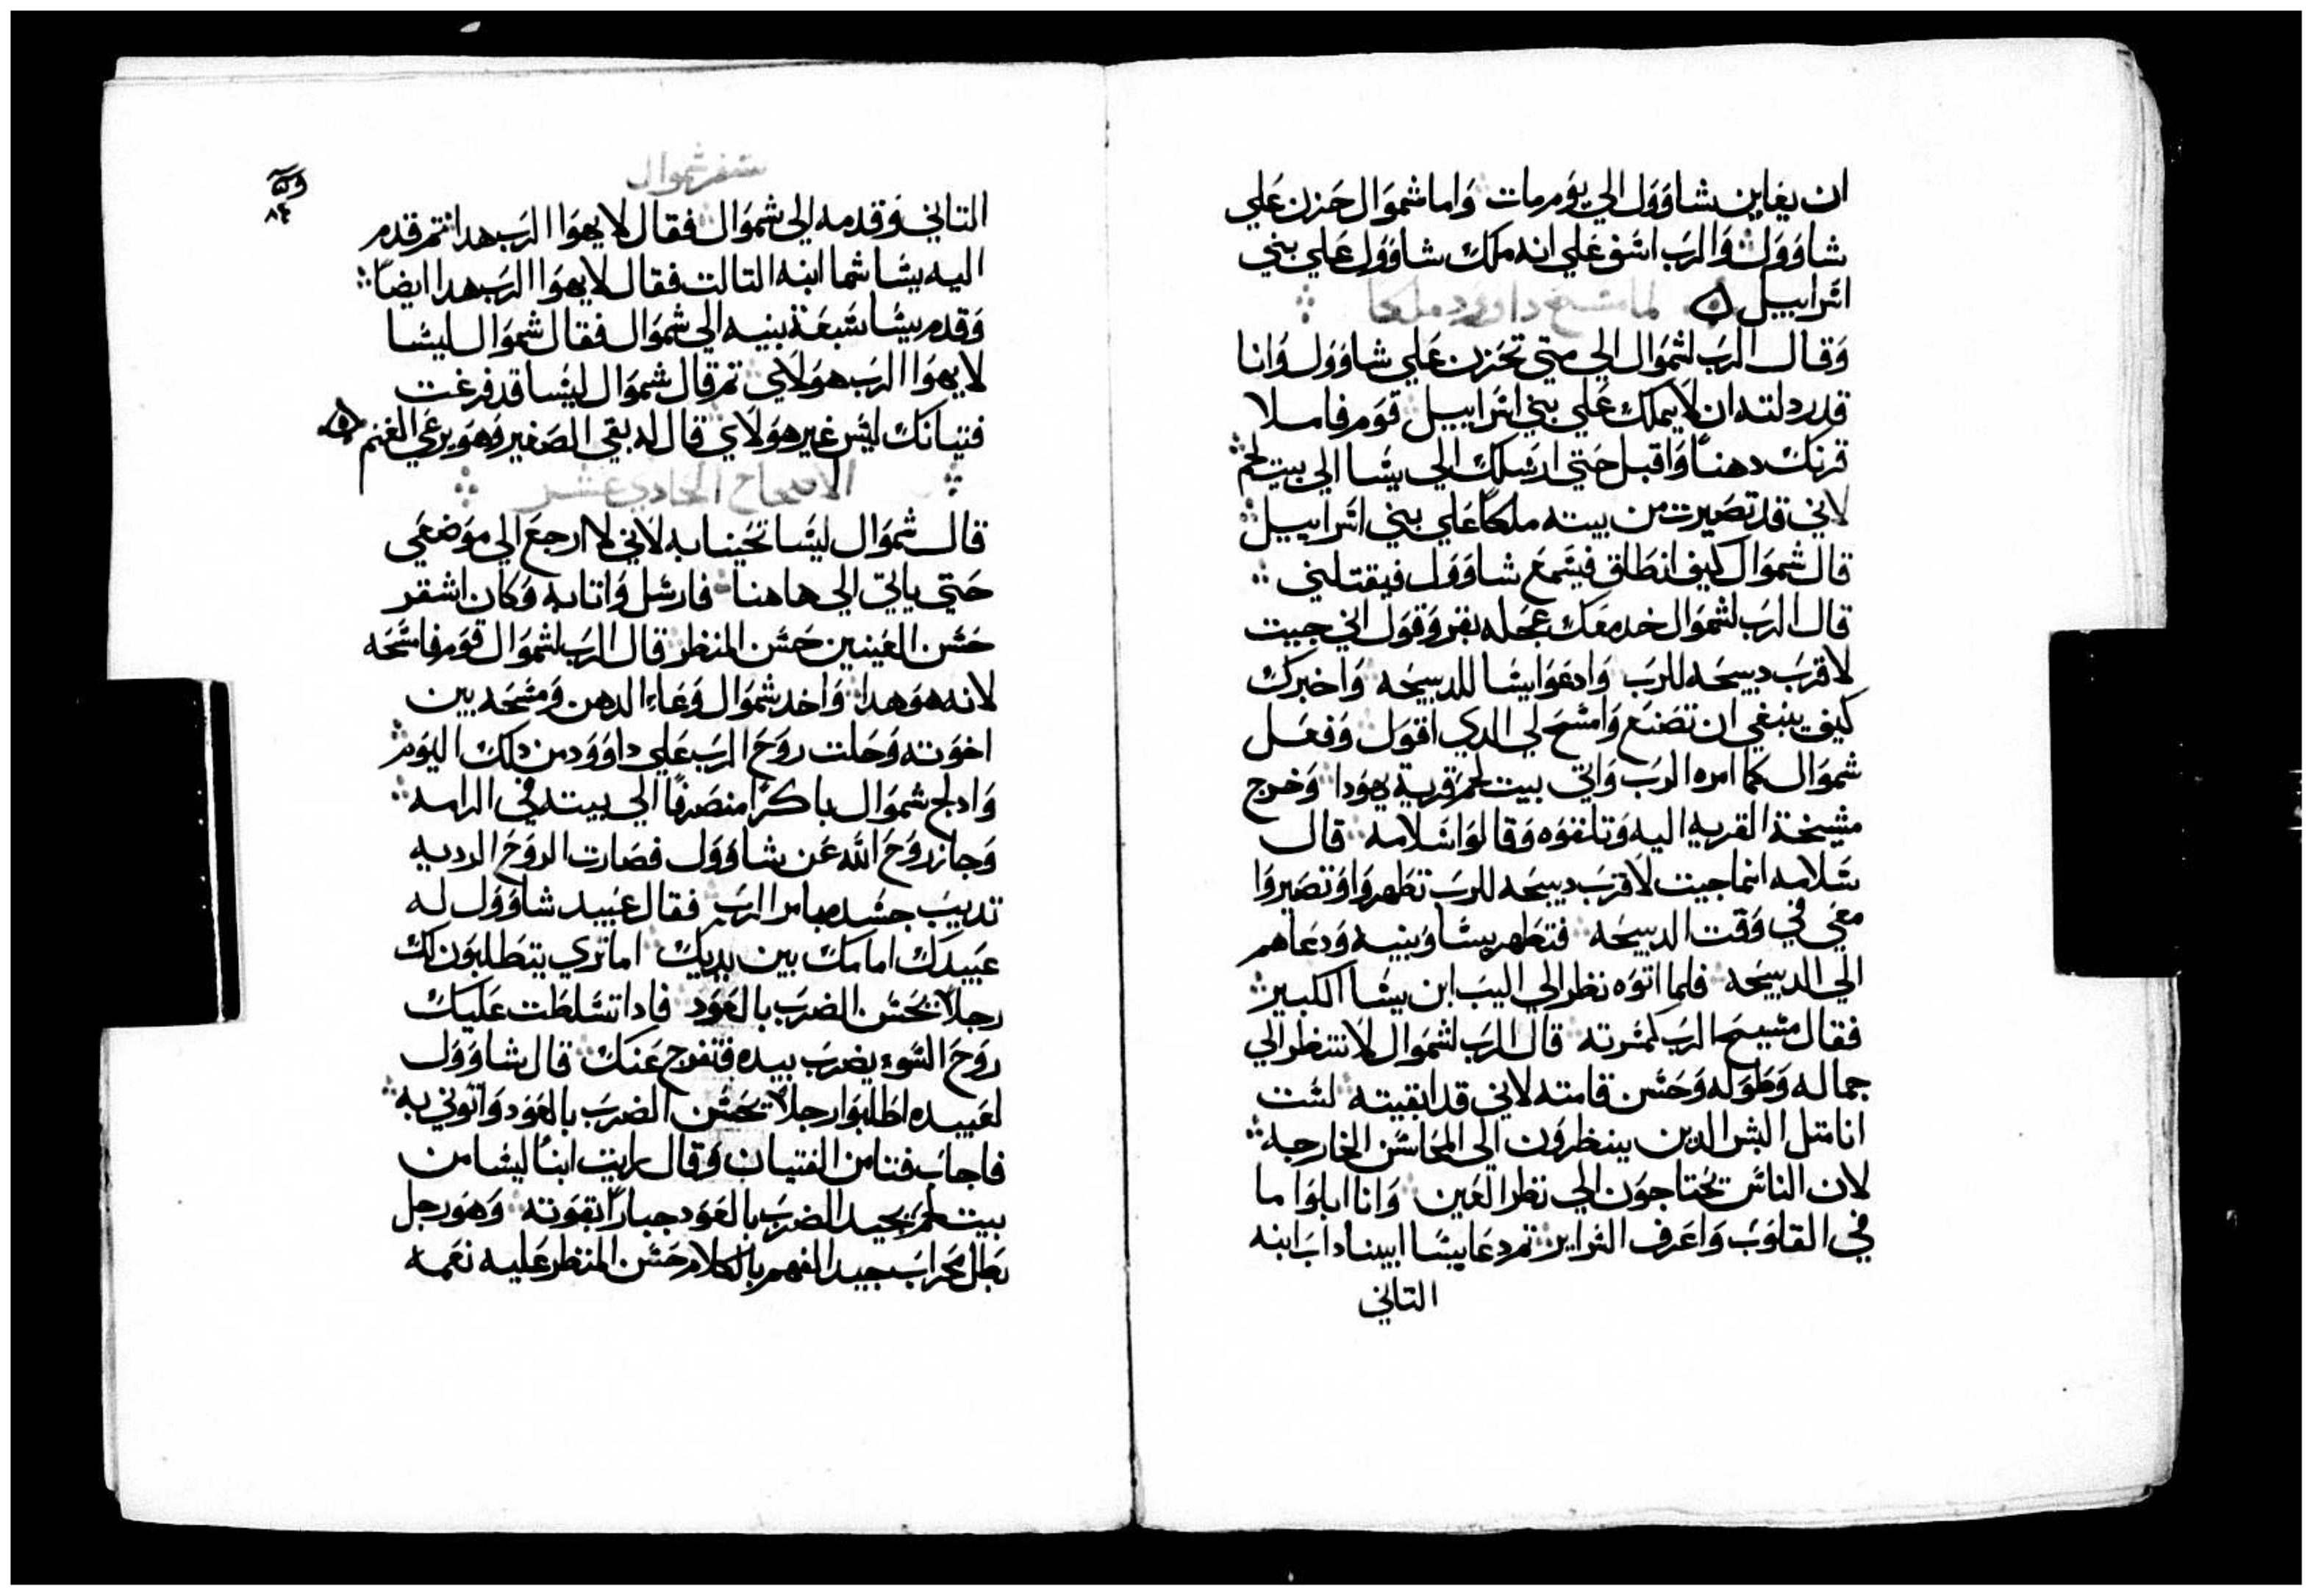 ان يعاين شاوول الي يوم مات واما شموال حزن علي
شاوول والرب اسف علي انه ملك شاوول علي بني
اسراييل لما مسح داوود ملكا
وقال الرب لشموال الي متي تحزن علي شاوول وانا
قد ردلته ان لا يملك علي بني اسراييل قوم فاملا
قرنك دهنا واقبل حتي ارسلك الي يسا الي بيت لحم
لاني قد تصيرت من بيته ملكا علي بني اسراييل
قال شموال كيف انطلق فيسمع شاوول فيقتلني
قال الرب لشموال خد معك عجله بقر وقول اني جيت
لاقرب دبيحه للرب وادعوا يسا للدبيحه واخبرك
كيف ينبغي ان تصنع وامسح لي الدي اقول وفعل
شموال كما امره الرب واتي بيت لحم قرية يهودا وخرج
مشيخة القريه اليه وتلقوه وقالوا سلامه قال
سلامه انما جيت لاقرب دبيحه للرب تطهروا وتصيروا
معي في وقت الدبيحه فتطهر يسا وبنيه ودعاهم
الي الدبيحه فلما اتوه نظر الي اليب ابن يسا الكبير
فقال مسيح الرب كمثرته قال الرب لشموال لا تنظر الي
جماله وطوله وحسن قامته لاني قد ابقيته لست
انا متل البشر الدين ينظرون الي المحاسن الخارجه
لان الناس يحتاجون الي نظر العين وانا ابلوا ما
في القلوب واعرف السراير تم دعا يسا ابيناداب ابنه
التاني
سفر شموال
٨٤
التاني وقدمه الي شموال فقال لا يهوا الرب هدا تم قدم
اليه يسا شما ابنه التالت فقال لا يهوا الرب هدا ايضا
وقدم يسا سبعة بنيه الي شموال فقال شموال ليسا
لا يهوا الرب هولاي تم قال شموال ليسا قد فرغت
فتيانك ليس غير هولاي قال له بقي الصغير وهو يرعي الغنم
الاصحاح الحادي عشر
قال شموال ليسا تحينا به لاني لا ارجع الي موضعي
حتي ياتي الي هاهنا فارسل واتا به وكان اشقر
حسن العينين حسن المنظر قال الرب لشموال قوم فامسحه
لانه هو هدا واخد شموال وعاء الدهن ومسحه بين
اخوته وحلت روح الرب علي داوود من دلك اليوم
وادلج شموال باكرا منصرفا الي بيته في الرامه
وجاز روح الله عن شاوول فصارت الروح الرديه
تديب جسده بامر الرب فقال عبيد شاوول له
عبيدك امامك بين يديك اما تري يتطلبون لك
رجلا يحسن الضرب بالعود فادا تسلطت عليك
روح السوء يضرب بيده فتفرج عنك قال شاوول
لعبيده اطلبوا رجلا يحسن الضرب بالعود واتوني به
فاجاب فتا من الفتيان وقال رايت ابنا ليسا من
بيت لحم يجيد الضرب بالعود جبارا بقوته وهو رجل
بطل محراب جيد الفهم بالكلام حسن المنظر عليه نعمه